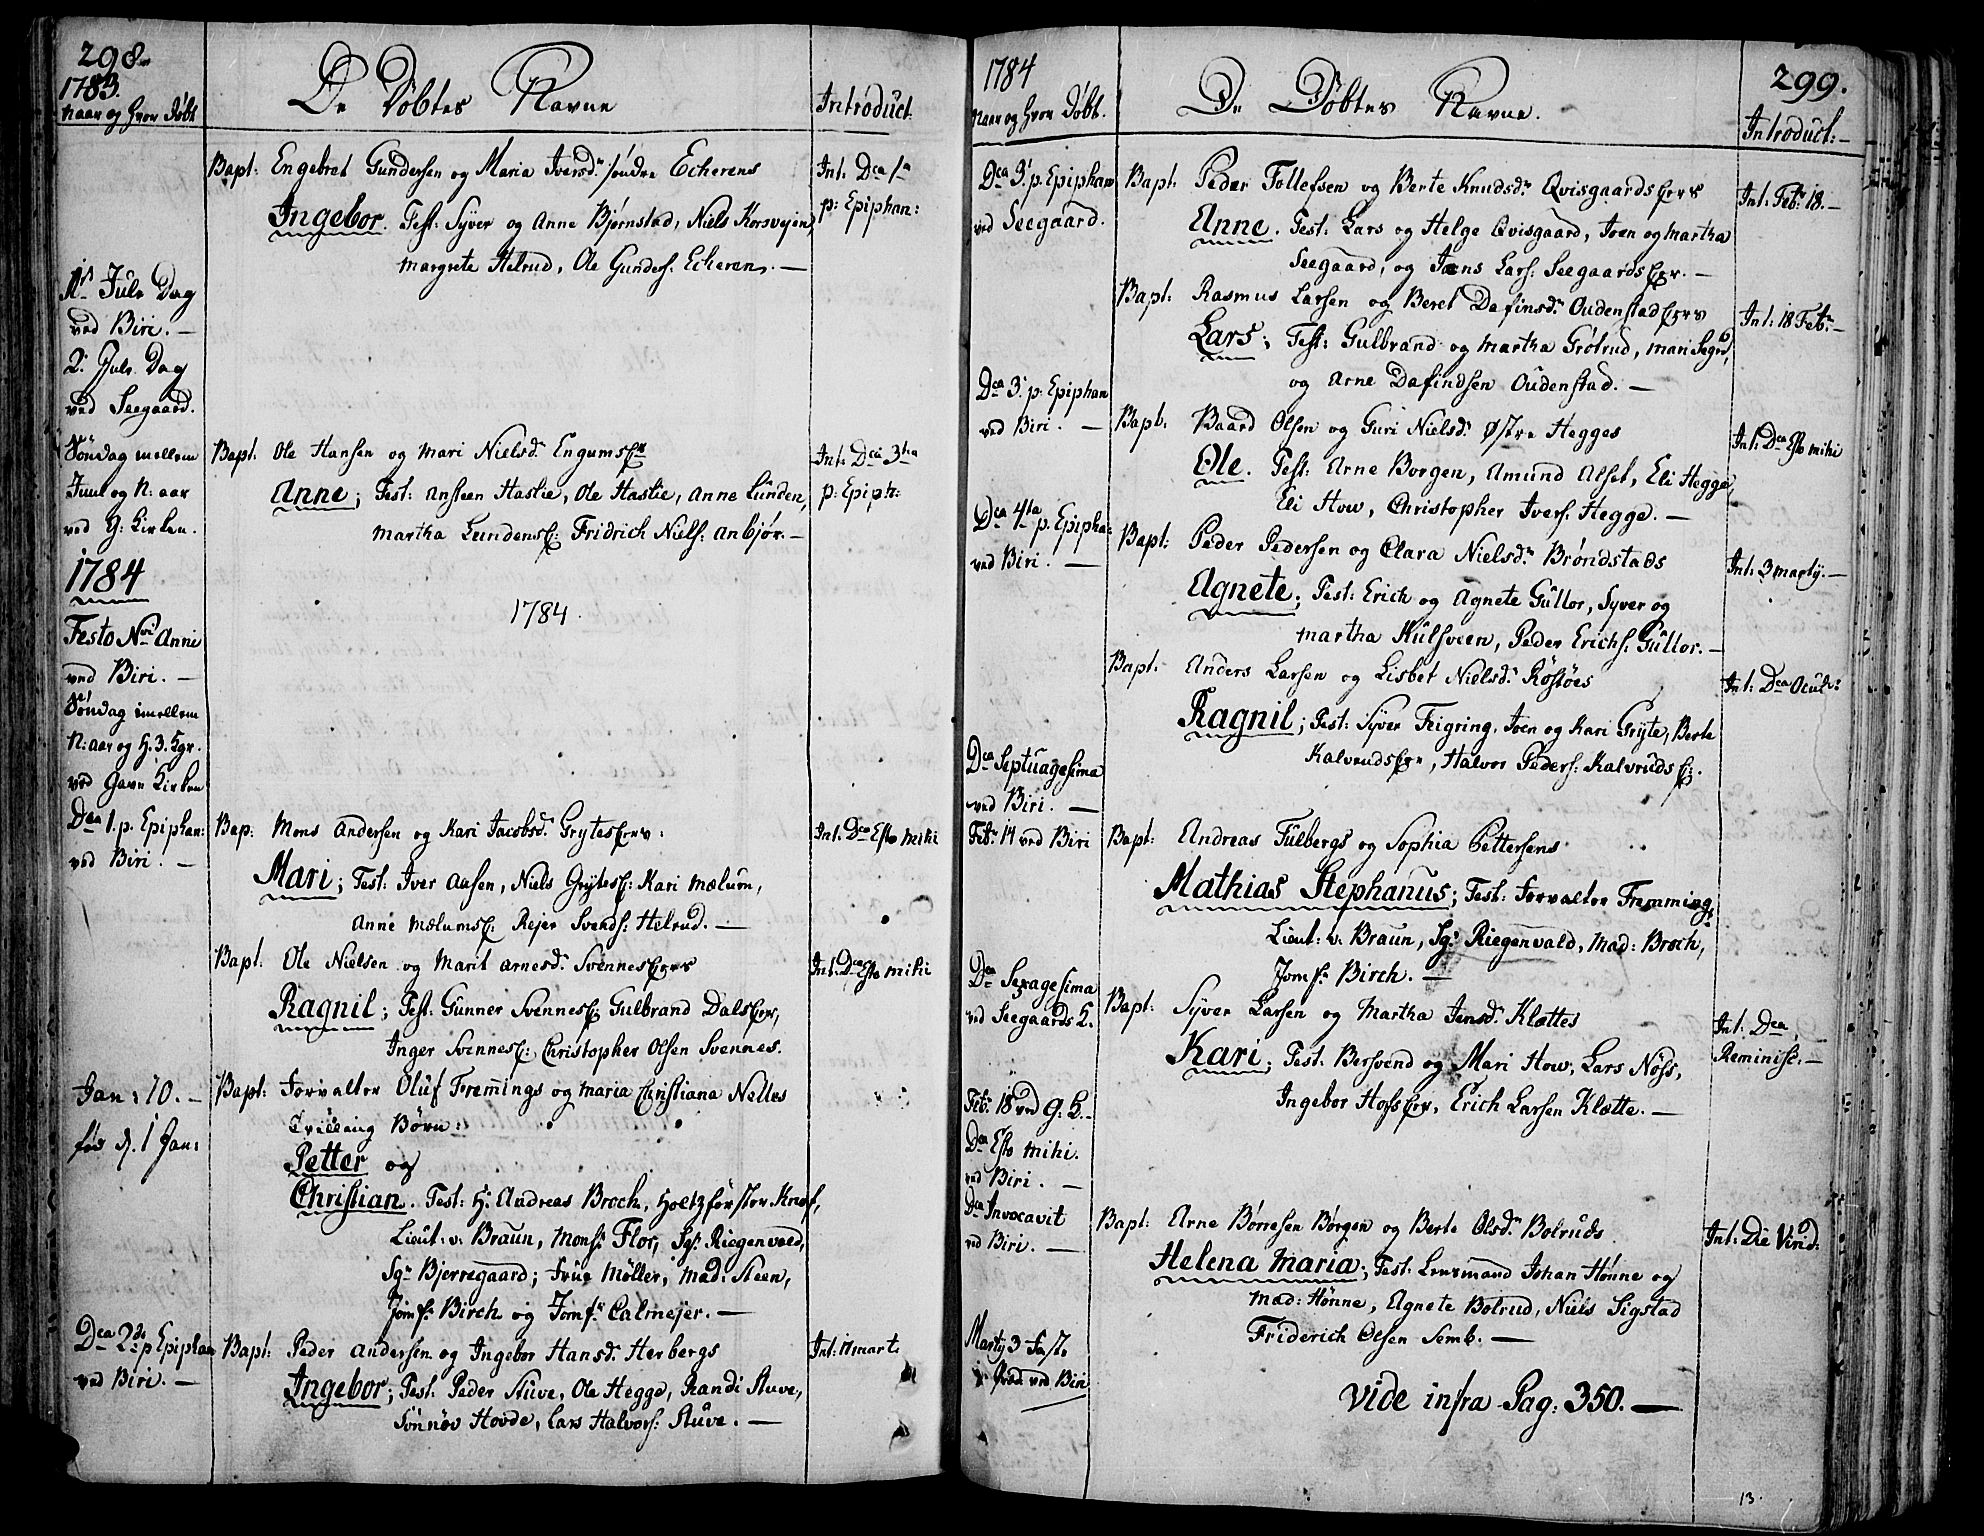 298.
1783.
Naar og hvor Døbt
De Döbtes Navne
Introduct.
Bapt: Engebret Gundersen og Maria Iversd. søndre Echerens
Int. Dca 1a
Ingebor. Test: Syver og Anne Bjørnstad, Niels Korsvejen,
p: Epiphan:
Margrete Helrud, Ole Gunders: Echeren. —
1st Jule Dag
ved Biri. —
2. Jule Dag
ved Seegaard.
Søndag imellem
Juul og N: aar
ved G: Kirken.
Bapt: Ole Hansen og Mari Nielsd. Engums
Int: Dca 3tia
Anne; Test: Ansteen Haslie, Ole Haslie, Anne Lunden,
p: Epiph:
Martha Lundens Fridrich Niels: Anbjør. —
1784
1784.
Festo Nvi Anni
ved Biri. —
Søndag imellem
N: aar og H. 3. Kgr.
ved Gavn Kirken
Dca 1. p. Epiphan:
ved Biri. —
Bap: Mons Andersen og Kari Jacobsd. Grytes
Int: Dca Esto mihi
Mari; Test: Iver Aasen, Niels Grytes Kari Mælum,
Anne Mælums Rejer Svends: Helrud. —
Bapt: Ole Nielsen og Marit Arnesd. Svennes
Int: Dca Esto mihi
Ragnil; Test: Gunner Svennes Gulbrand Dals
Inger Svennes Christopher Olsen Svennes.
Jan: 10. —
Bapt: Forvalter Oluf Fremings og Maria Christiana Nelles
Tvilling Børn:
fød d. 1 Jan:
Petter og
Christian. Test: Hr Andreas Broch, Holtzførster Knoph,
Lieut: v. Braun, Monsr Flor, Sgr Riegenvald,
Sgr Bjerregaard; Frue Møller, Mad: Steen,
Jomfr: Birch og Jomfr: Calmejer. —
Dca 2da p Epiphan
ved Biri. —
Bapt: Peder Andersen og Ingebor Hansd. Herbergs
Int: 17 Marti
Ingebor; Test: Peder Stuve, Ole Hegge, Randi Stuve,
Sønnøv Hovde, Lars Halvors: Stuve. —
1784
299.
Naar og hvor Døbt.
De Döbtes Navne.
Introduct: —
Dca 3. p. Epiphan
ved Seegaard.
Bapt: Peder Tollefsen og Berte Knudsd. Qvisgaards
Int: Feb: 18. —
Anne. Test: Lars og Helge Qvisgaard, Joen og Martha
Seegaard, og Jens Lars: Seegaards —
Bapt: Rasmus Larsen og Beret Dafinsd. Oudenstad
Int: 18 Feb: —
Lars; Test: Gulbrand og Martha Grøtrud, Mari Segrd,
og Arne Dafindsen Oudenstad. —
Dca 3. p: Epiphan
ved Biri. —
Bapt. Baard Olsen og Guri Nielsd. Østre Hegges
Int: Dca Esto mihi
Ole. Test: Arne Borgen, Amund Alset, Eli Hegge,
Eli How, Christopher Ivers: Hegge. —
Dca 4ta p. Epipha:
ved Biri. —
Bapt: Peder Pedersen og Clara Nielsd. Brøndstads
Int: 3 Martij. —
Agnete; Test: Erich og Agnete Gullor, Syver og
Martha Hulsveen, Peder Erichs: Gullor. —
Bapt. Anders Larsen og Lisbet Nielsd. Røstøes
Int: Dca Oculi:
Ragnil; Test: Syver Frigring, Joen og Kari Gryte, Berte
Kalvruds Halvor Peders: Kalvruds
Dca Septuagesima
ved Biri. —
Feb: 14 ved Biri
Bapt: Andreas Fulbergs og Sophia Pettersens
Mathias Stephanus; Test: Forvalter Fremming,
Lieut: v. Braun, Sgr Riegenvald, Mad: Broch,
Jomfr Birch. —
Dca Sexagesima
ved Seegaards K.
Bapt: Syver Larsen og Martha Jensd. Klættes
Int: Dca
Kari; Test: Bersvend og Mari How, Lars Nøss,
Reminisc: —
Ingebor Erich Larsen Klætte. —
Feb: 18 ved G: K. —
Dca Esto mihi.
ved Biri. —
Dca Invocavit
ved Biri. —
Bapt: Arne Børresen Børgen og Berte Olsd. Bolruds
Int: Die Virid:
Helena Maria; Test: Lensmand Johan Hønne og
Mad: Hønne, Agnete Bolrud, Niels Sigstad
Friderich Olsen Semb. —
Martij 3
ved Biri
Vide infra Pag: 350. —
13.